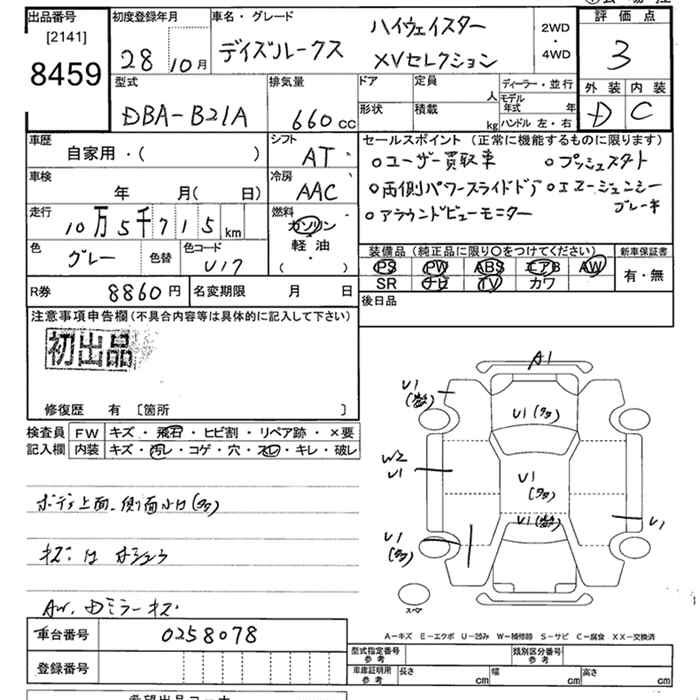 出品番号 初度登録年月 車名・グレード ハイウェイスター 2WD・4WD 評価点
[2141]
8459
28 10月 デイズルークス XVセレクション 3
外装 内装
D C
型式 排気量 ドア 定員 人 ディーラー・並行
DBA-B21A 660cc 形状 積載 kg モデル年式 年
ハンドル 左・右
車歴 シフト セールスポイント (正常に機能するものに限ります)
自家用・( ) AT
○ユーザー買取車 ○プッシュスタート
車検 冷房
年 月( 日) AAC
○両側パワースライドドア ○エマージェンシーブレーキ
走行 燃料
10万5千715km ガソリン
○アラウンドビューモニター
軽油
( )
色 グレー 色替 色コード U17
装備品 (純正品に限り○をつけてください) 新車保証書
PS PW ABS エアB AW 有・無
SR ナビ TV カワ
R券 8860円 名変期限 月 日
後日品
注意事項申告欄(不具合内容等は具体的に記入して下さい)
初出品
修復歴 有 〔箇所 〕
検査員記入欄 FW キズ・飛石・ヒビ割・リペア跡・×要
内装 キズ・汚レ・コゲ・穴・スレ・キレ・破レ
A1
U1
U1
W2
U1
U1
U1
U1
U1
スペア
AW. Dミラーキズ
車台番号 0258078
登録番号
A-キズ E-エクボ U-凹み W-補修跡 S-サビ C-腐食 XX-交換済
型式指定番号 参考 類別区分番号 参考
車庫証明用 参考 長さ cm 幅 cm 高さ cm